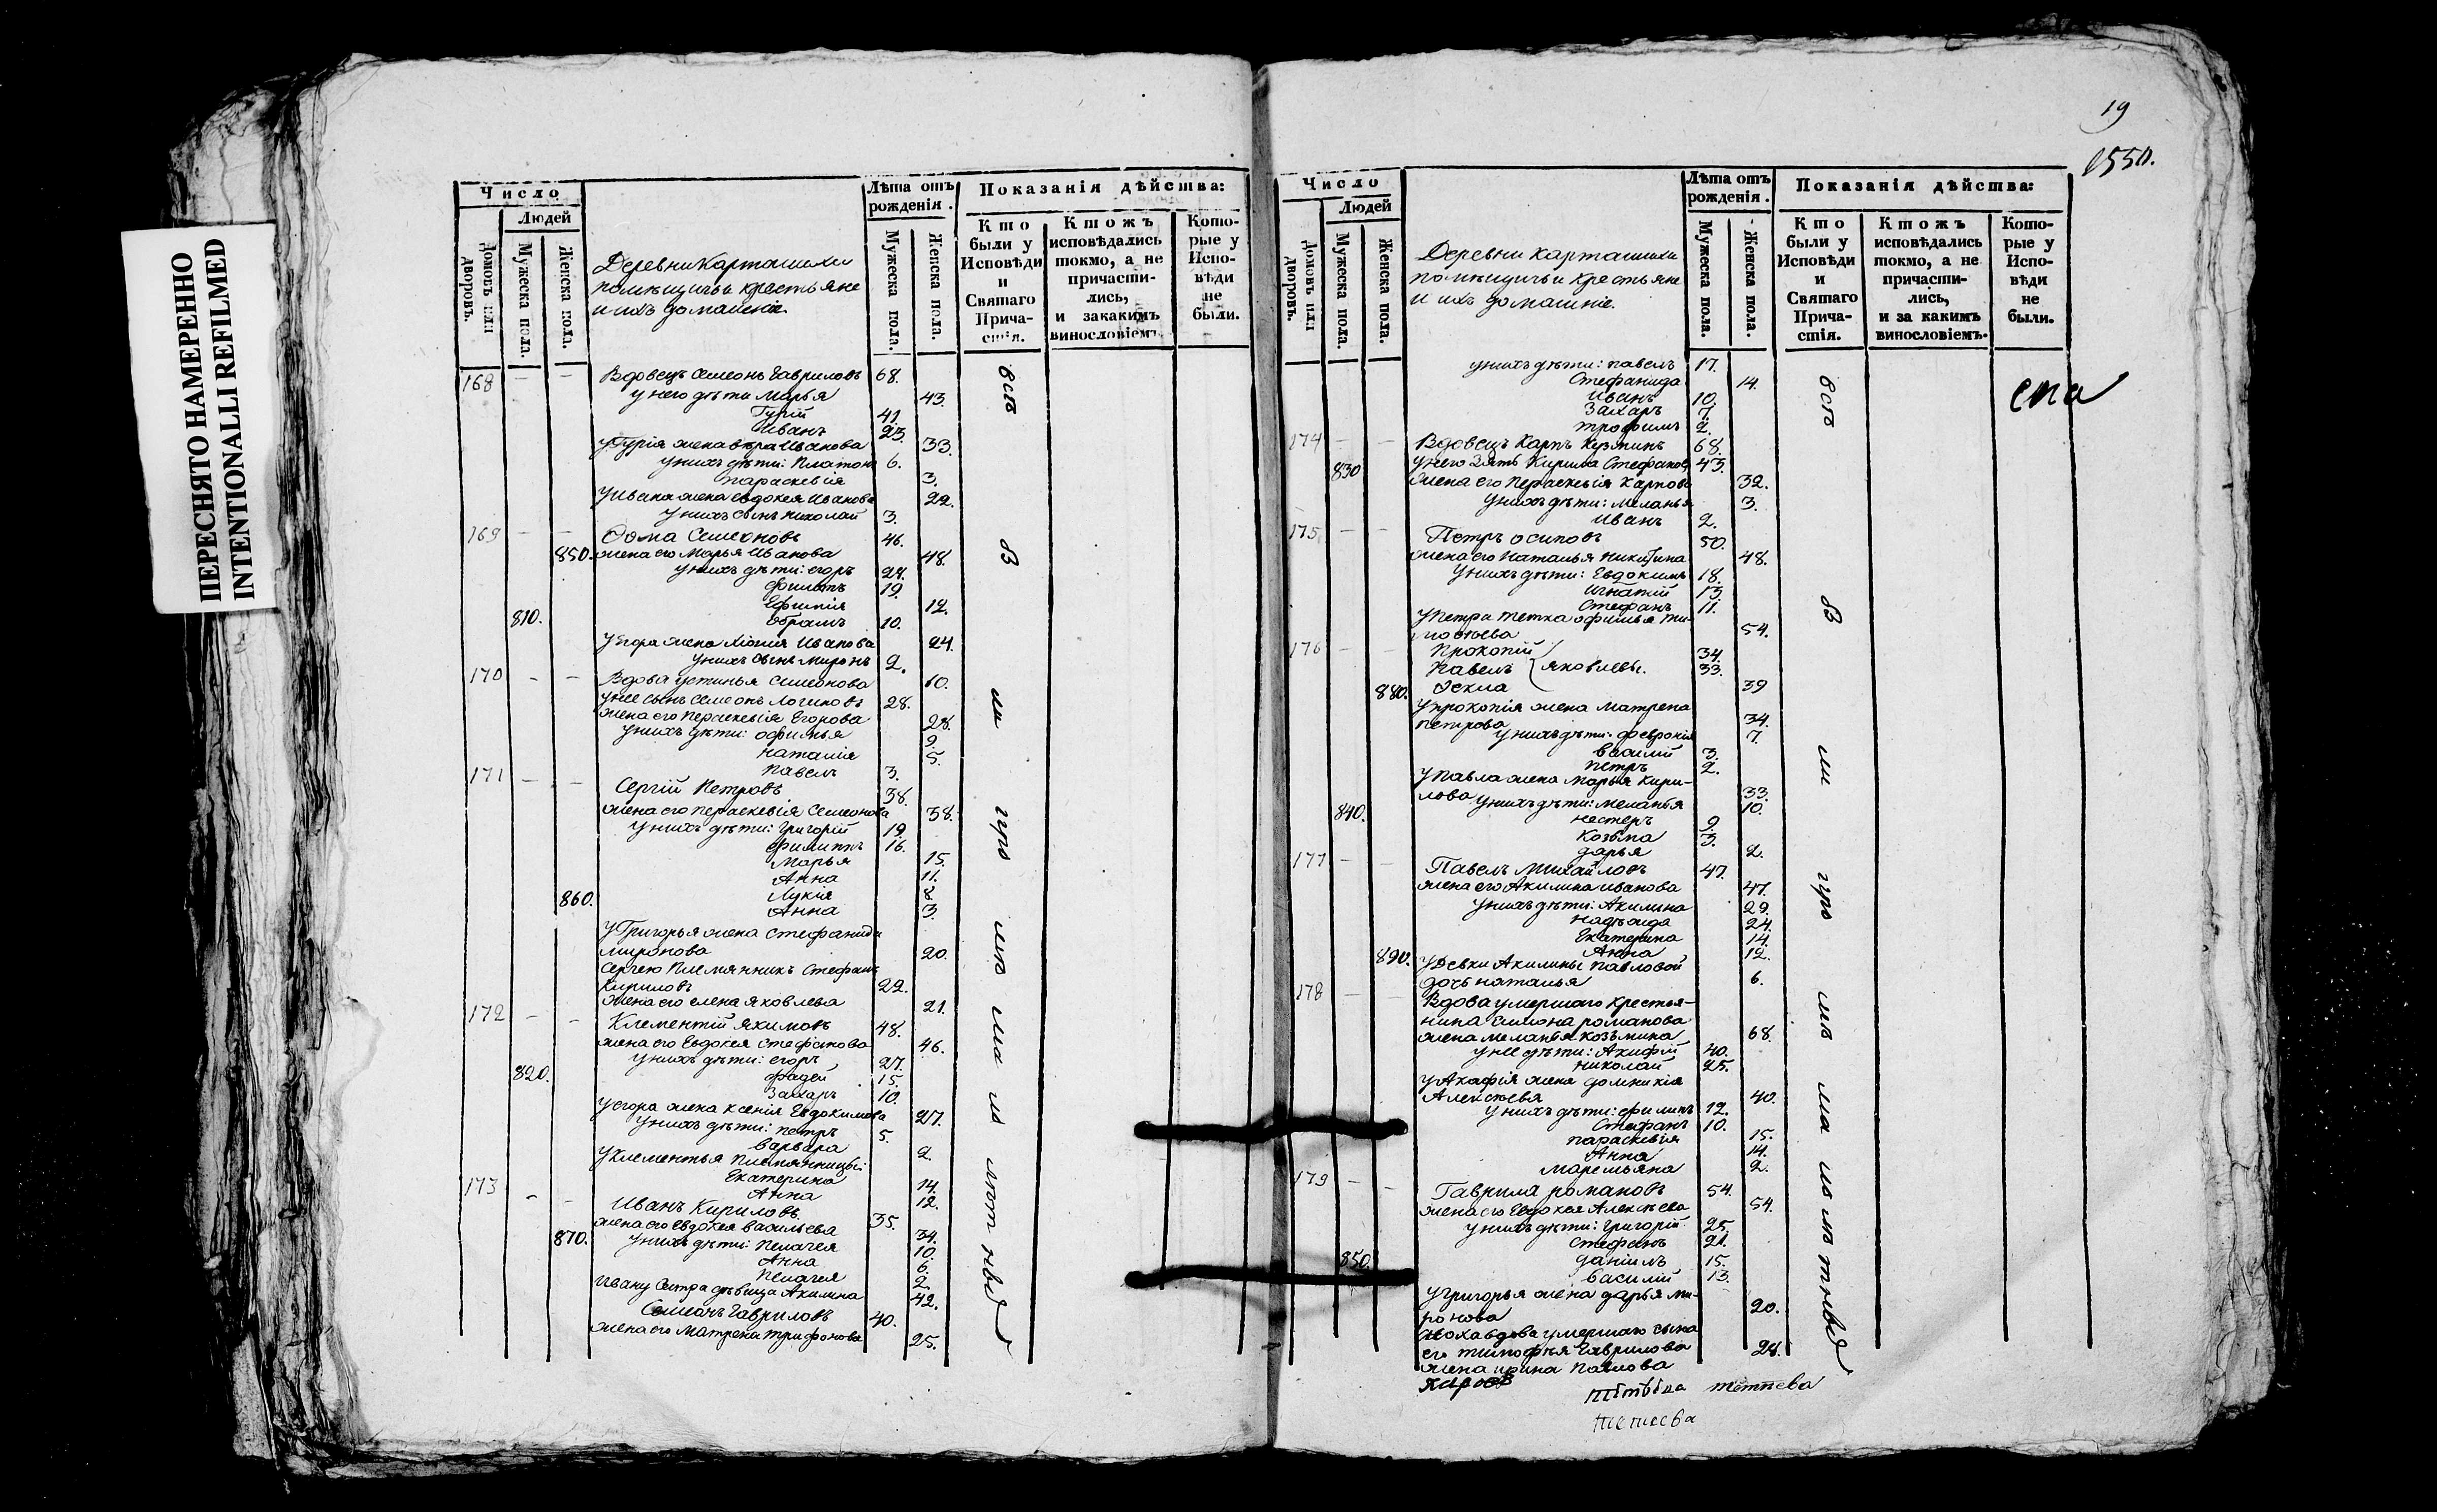 ПЕРЕСНЯТО НАМЕРЕННО
INTENTIONALLI REFILMED
Число
Людей
Домовъ или дворовъ.
Мужеска пола.
Женска пола.
Деревни Карташихи
помѣщичьи крестьяне
и ихъ домашніе.
Лѣта отъ рожденія.
Мужеска пола.
Женска пола.
Показанія дѣйства:
Кто были у Исповѣди и Святаго Причастія.
Ктожъ исповѣдались токмо, а не причастились, и закакимъ винословіемъ.
Которые у Исповѣди не были.
168 — — Вдовецъ Семеонъ Гавриловъ 68.
у него дѣти Марья 43.
Гурій 41.
Иванъ 23.
У Гурія жена вѣра Иванова 33.
у нихъ дѣти: Платонъ 6.
параскевія 3.
У Ивана жена евдокея Иванова 22.
у нихъ сынъ николай 3.
169 — — Ѳома Семеоновъ 46.
850. жена его Марья Иванова 48.
у нихъ дѣти: егоръ 24.
филатъ 19.
Ефимія 12.
810. Абрамъ 10.
У егора жена Иванова 24.
у нихъ сынъ миронъ 2.
170 — — Вдова устинья Семеонова 10.
у нее сынъ Семеонъ логиновъ 28.
жена его Параскевія Егорова 28.
у нихъ дѣти: офимья 9.
наталія 5.
павелъ 3.
171 — — Сергій Петровъ 38.
жена его параскевія Семеонова 38.
у нихъ дѣти: Григорій 19.
филиппъ 16.
Марья 15.
Анна 11.
860. Лукія 8
Анна 3.
У Григорья жена Стефанида
миронова 20.
Сергею Племянникъ Стефанъ
Кириловъ 22.
жена его елена яковлева 21.
172 — — Клементій якимовъ 48.
жена его Евдокея Стефанова 46.
у нихъ дѣти: егоръ 27.
820. фадей 15.
Захаръ 10.
У егора жена ксенія Евдокимова 27.
у нихъ дѣти: петръ 5.
варвара 2.
У клементья племянницы:
Екатерина 14.
Анна 12.
173 — — Иванъ Кириловъ 35.
жена его евдокея васильева 34.
870. у нихъ дѣти: Пелагея 10.
Анна 6.
Пелагея 2.
Ивану Сестра дѣвица Акилина 42.
Семеонъ Гавриловъ 40.
жена его Матрена трифонова 25.
19
1550.
Число
Людей
Домовъ или дворовъ.
Мужеска пола.
Женска пола.
Деревни Карташихи
помѣщичьи крестьяне
и ихъ домашніе.
Лѣта отъ рожденія.
Мужеска пола.
Женска пола.
Показанія дѣйства:
Кто были у Исповѣди и Святаго Причастія.
Ктожъ исповѣдались токмо, а не причастились, и за какимъ винословіемъ.
Которые у Исповѣди не были.
у нихъ дѣти: павелъ 17.
Стефанида 14.
Иванъ 10.
Захаръ 7.
трофимъ 2.
174 — — Вдовецъ Карпъ Кузминъ 68.
830 у него Зять Кирила Стефановъ 43.
жена его Параскевія Карпова 32.
у нихъ дѣти: меланья 3.
Иванъ 2.
175 — — Петръ осиповъ 50.
жена его Наталья никитина 48.
у нихъ дѣти: Евдокимъ 18.
Игнатій 13.
Стефанъ 11.
У петра тетка офимья ти-
моѳеева 54.
176 — — Прокопій 34.
Павелъ яковлевы. 33.
880. Ѳекла 39
У прокопія жена матрена
петрова 34.
у нихъ дѣти: февронія 7.
василій 3.
петръ 2.
У Павла жена марья кири-
лова 33.
у нихъ дѣти: меланья 10.
840. нестеръ 9.
козьма 3.
дарья 2.
177 — — Павелъ Михайловъ 47.
жена его Акилина иванова 47.
у нихъ дѣти: Акилина 29.
надѣжда 24.
Екатерина 14.
890. Анна 12.
У Девки Акилины Павловой
дочь наталья 6.
178 — — Вдова умершаго крестья-
нина Симіона романова
жена меланья козьмина 68.
у нее дѣти: Акифій 40.
николай 25.
У Акафія жена домникія
Алексѣева 40.
у нихъ дѣти: филипъ 12.
Стефанъ 10.
параскевія 15.
Анна 14.
маремьяна 2.
179 — — Гаврила романовъ 54.
жена его Евдокея Алексѣева 54.
у нихъ дѣти: григорій 25.
стефанъ 21.
850. даніилъ 15.
василій 13.
У григорья жена дарья ми-
ронова 20.
вдова умершаго сына
его тимофѣя Гаврилова 24.
жена ирина павлова